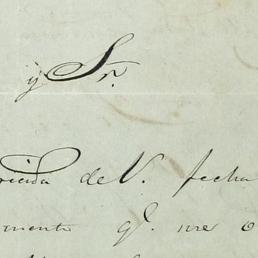 y Sr.
recida de V. fecha
mento q.e me o